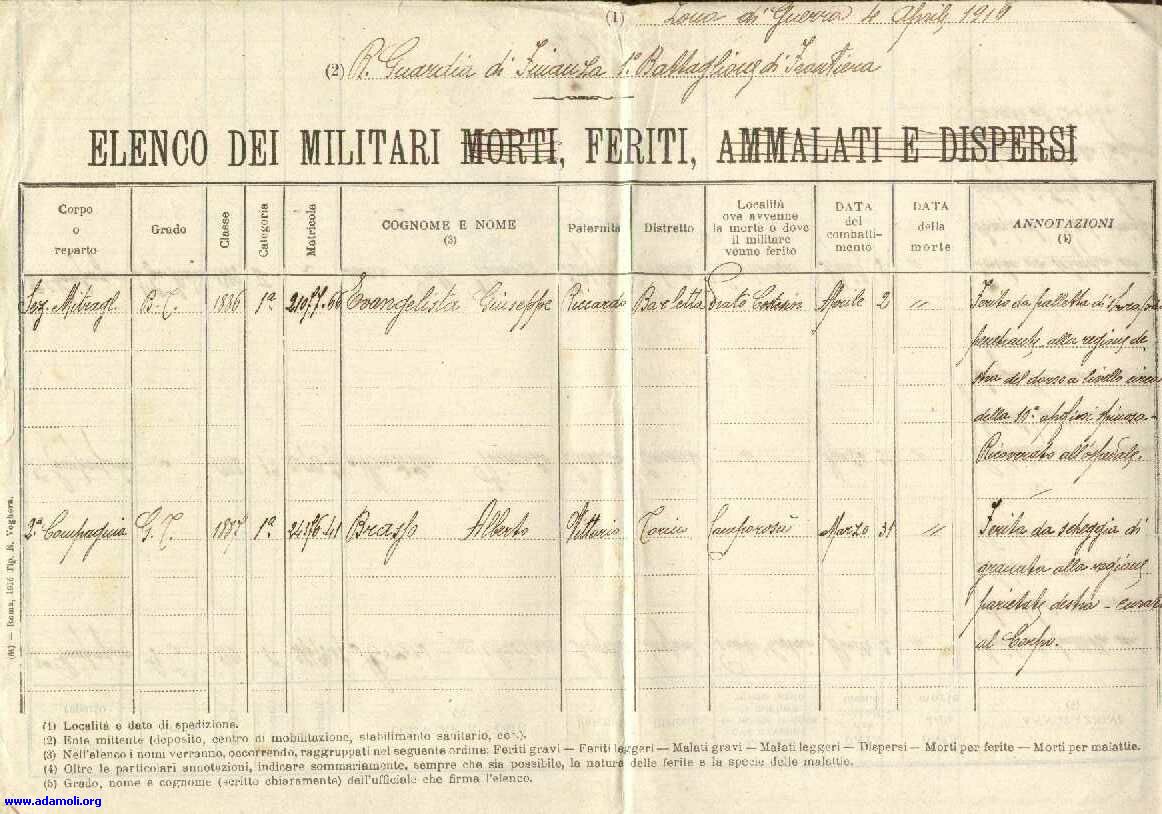 (1) Zona di Guerra 4 Aprile 1919
(2) R. Guardia di Finanza 1º Battaglione di Frontiera
ELENCO DEI MILITARI MORTI, FERITI, AMMALATI E DISPERSI
Corpo o reparto
Grado
Classe
Categoria
Matricola
COGNOME E NOME (3)
Paternità
Distretto
Località ove avvenne la morte o dove il militare venne ferito
DATA del combattimento
DATA della morte
ANNOTAZIONI (4)
Sez. Mitragl. B. T. 1886 1ª Evangelista Giuseppe Riccardo Barletta Prato Aprile 2 "
Ferito da palletta di
penetrante alla regione de-
stra del dorso a livello circa
della 10ª apofisi spinosa -
Ricoverato all'ospedale.
2ª Compagnia G. T. 1887 1ª Brasso Alberto Vittorio Torino Marzo 31 "
Ferito da scheggia di
granata alla regione
parietale destra - curato
al Corpo.
(1) Località e data di spedizione.
(2) Ente mittente (deposito, centro di mobilitazione, stabilimento sanitario, ecc.).
(3) Nell'elenco i nomi verranno, occorrendo, raggruppati nel seguente ordine: Feriti gravi — Feriti leggeri — Malati gravi — Malati leggeri — Dispersi — Morti per ferite — Morti per malattie.
(4) Oltre le particolari annotazioni, indicare sommariamente, sempre che sia possibile, la natura delle ferite e la specie delle malattie.
(5) Grado, nome e cognome (scritto chiaramente) dell'ufficiale che firma l'elenco.
Roma, 1916 Tip. E. Voghera.
www.adamoli.org